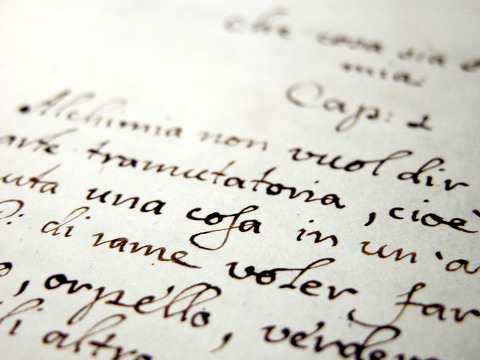 che cosa sia
mia:
Cap: 1
Alchimia non vuol dir
arte tramutatoria, cioè
una cosa in un'a
di rame voler far
, orpéllo, verder
altro